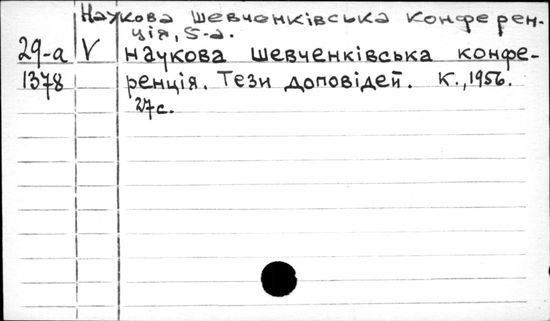 Наукова шевченківська конферен-
ція, 5-а.
29-а V наукова шевченківська конфе-
1378 ренція. Тези доповідей. К., 1956.
27с.